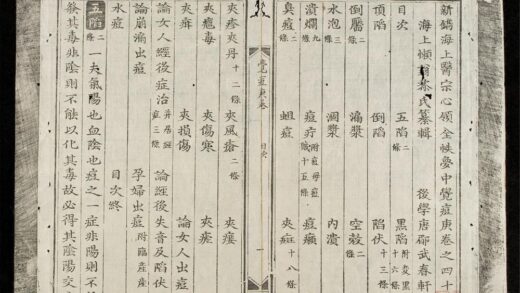 新鐫海上醫宗心領全帙夢中覺痘庚卷之四十
海上懶翁黎氏纂輯 後學唐郿武春軒
目次 五陷二條 黑陷附變黑十六條
頂陷 倒陷 陷伏十三
倒靨二條 漏漿 空殼二
水泡三條 涸漿 內潰
潰爛九條 痘疔附痘母痘賊十五條 痘癩
臭痘二條 蛆痘 夾癍十八條
覺痘庚卷 目次 一
夾疹夾丹十二條 夾風瘡二條 夾癭
夾瘡毒 夾傷寒 夾瘧
夾痳 夾損傷 論女人出痘
論女人經後症治并居經痘三條 論經後失音及陷伏
論崩漏出痘 孕婦出痘附臨產產
水痘 目次終
五陷二條 一夫氣陽也血陰也痘之一症非陽則不
發其毒非陰則不能以化其毒故必得其陰陽交